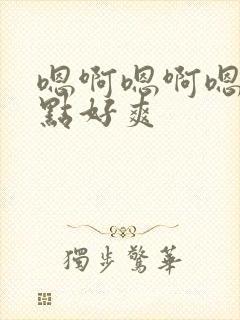 嗯啊嗯啊嗯
點好爽
獨步驚華